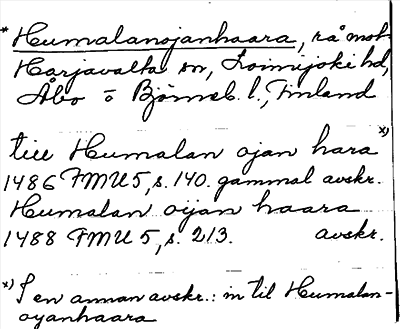 * Humalanojanhaara, rå mot
Harjavalta sn, Loimijoki hd,
Åbo o Björneb. l., Finland
till Humalan ojan hara x)
1486 FMU 5, s. 140. gammal avskr.
Humalan oijan haara
1488 FMU 5, s. 213. avskr.
x) I en annan avskr.: in til Humalan-
oyanhaara